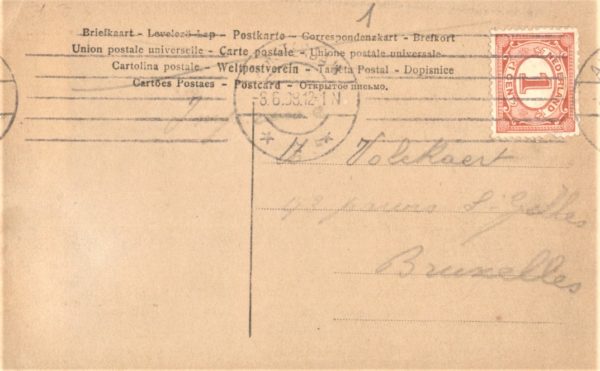 1
Briefkaart – Levelező-Lap – Postkarte – Correspondenzkart – Brefkort
Union postale universelle – Carte postale – Unione postale universale
Cartolina postale – Weltpostverein – Tarjeta Postal – Dopisnice
Cartões Postaes – Postcard – Открытое письмо.
NEDERLAND
1
CENT
-8.6.08.12-1 N
Volckaert
St Gilles
Bruxelles